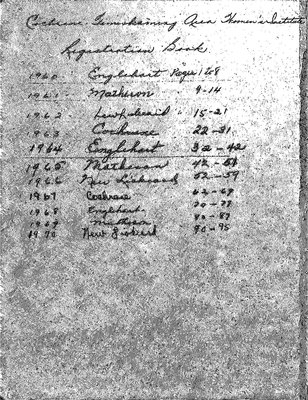 Cochrane-Temiskaming Area Women's Institute
Registration Book
1960 Englehart Page 1 to 8
1961 Matheson 9-14
1962 New Liskeard 15-21
1963 Cochrane 22-31
1964 Englehart 32-42
1965 Matheson 42-51
1966 New Liskeard 52-59
1967 Cochrane 62-69
1968 Englehart 70-77
1969 Matheson 80-87
1970 New Liskeard 90-95